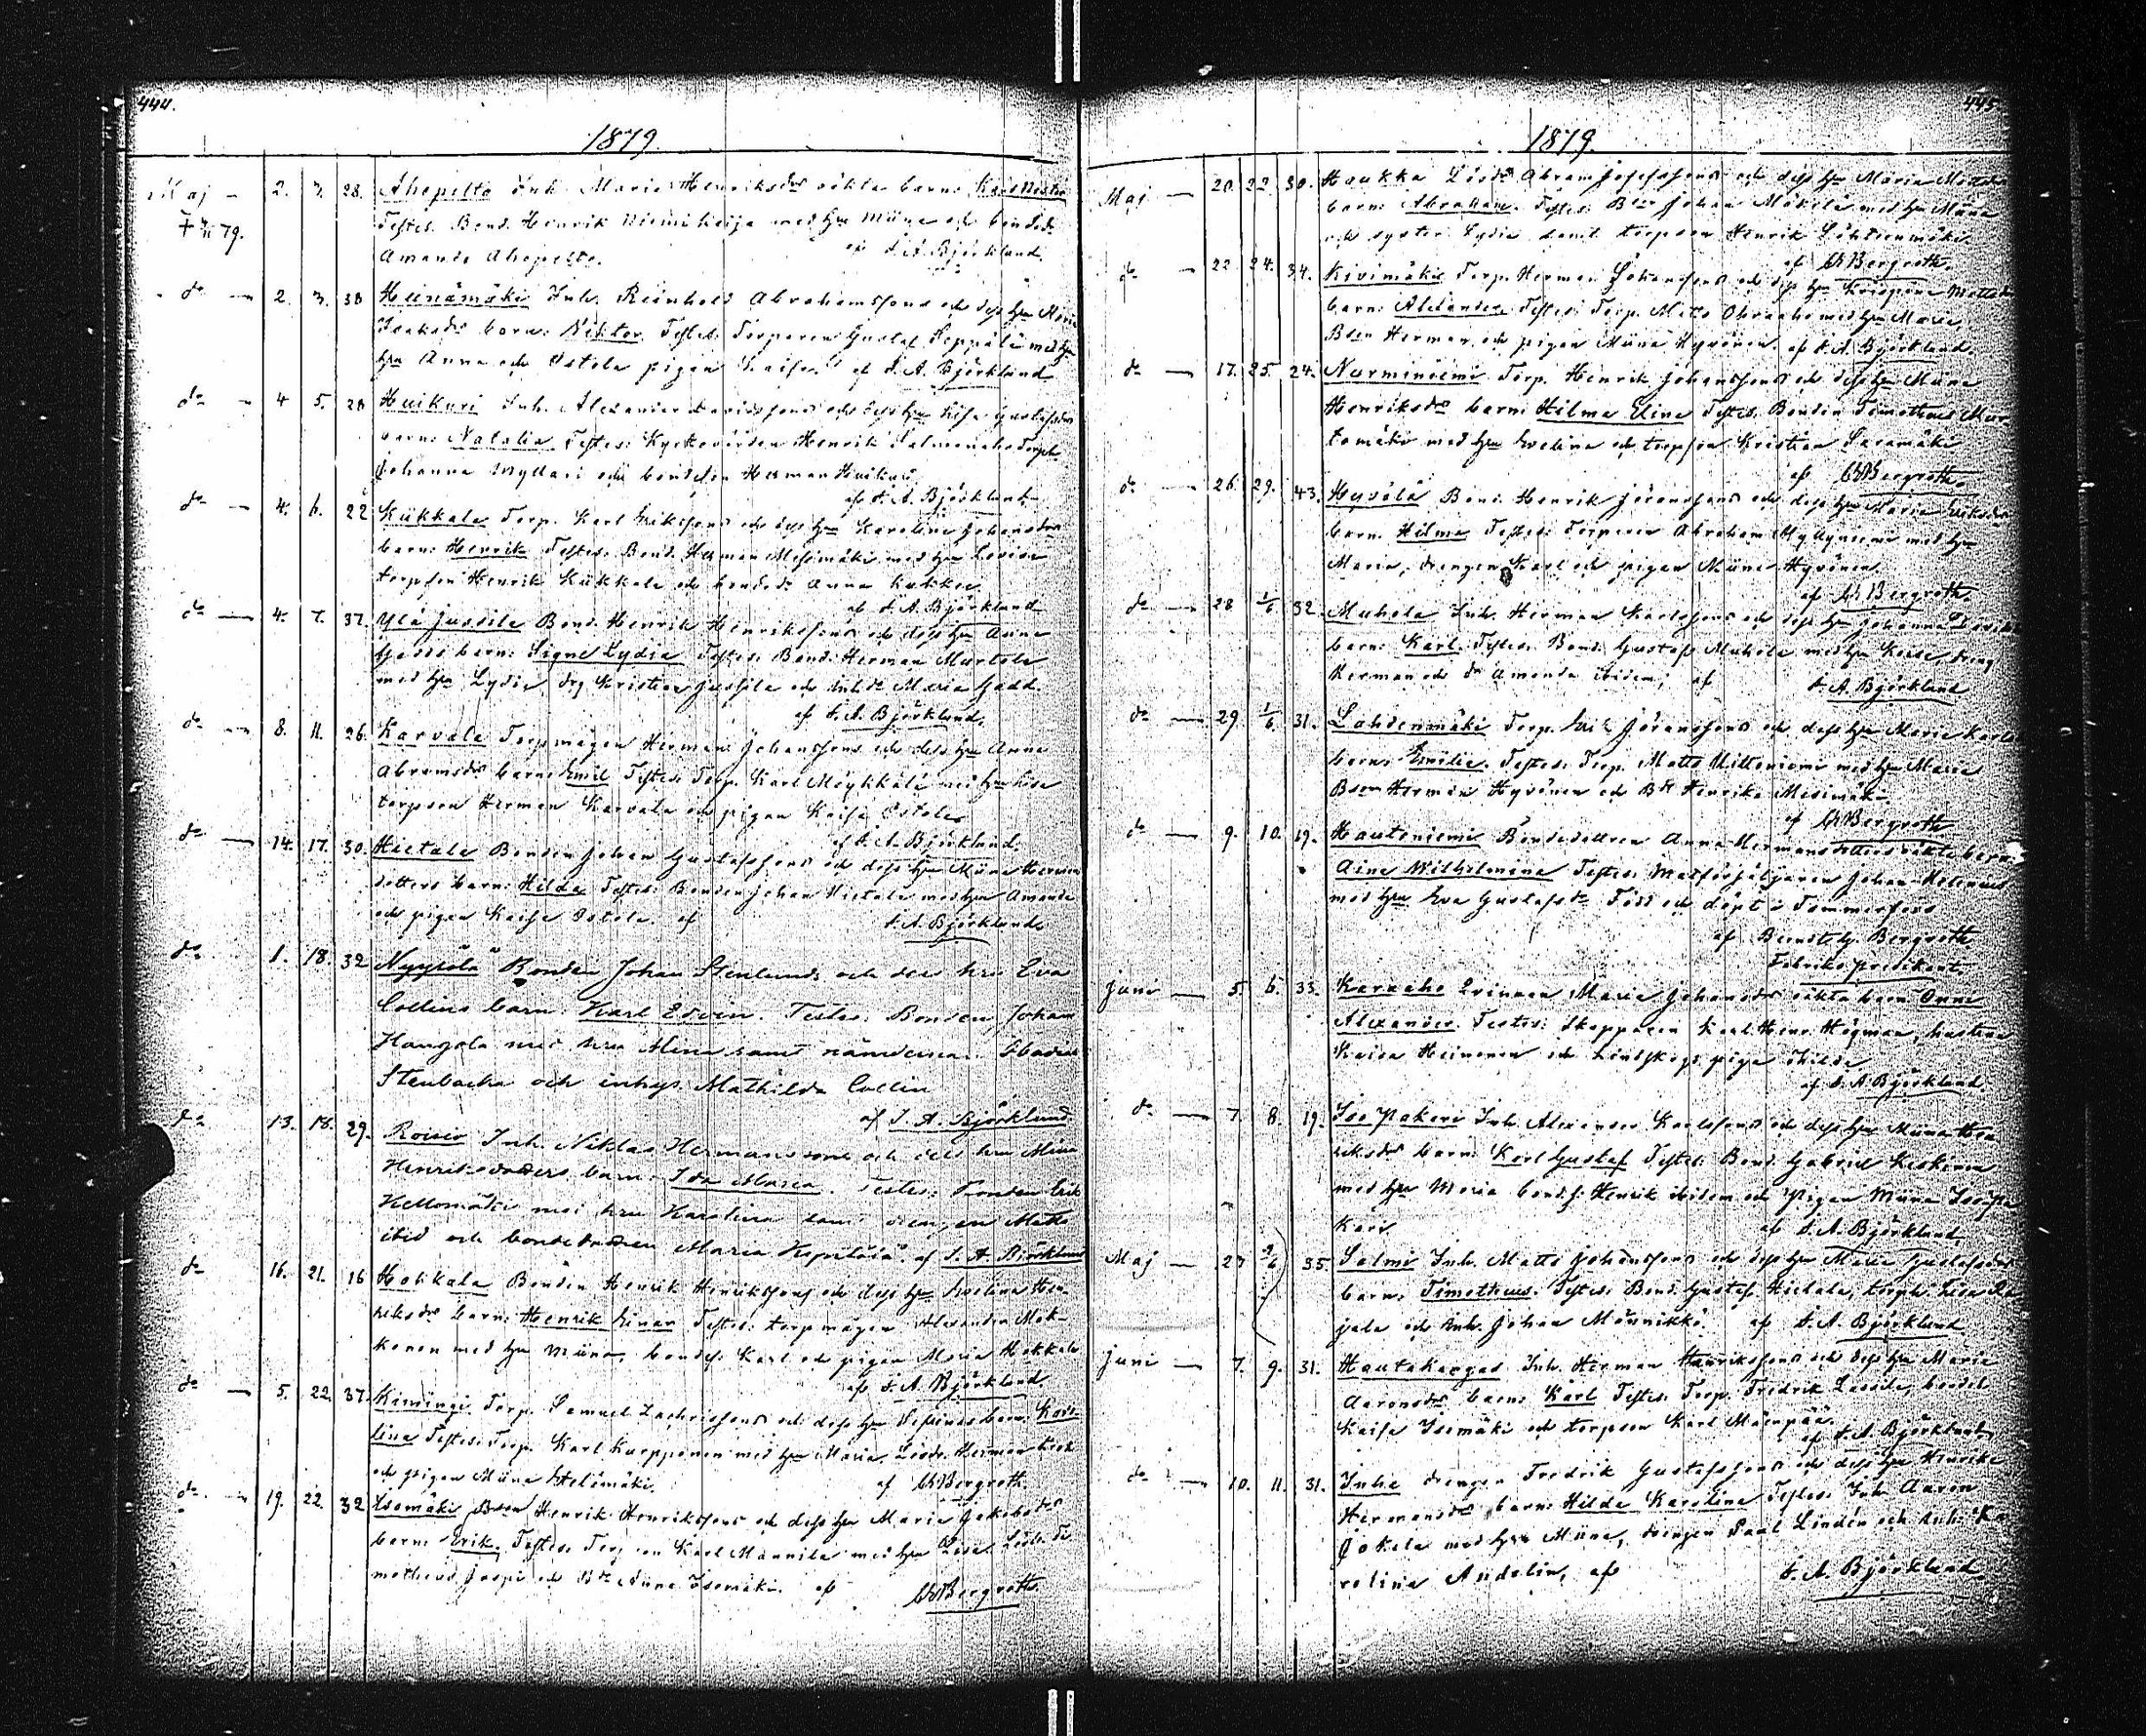 444.
1879.
Maj - 2. 3. 28. Ahopelto Inh. Maria Henriksdrs oäkta barn: Karl Nestor
Testes: Bond. Henrik Niemikeija med hu Miina och bondedr
Amanda Ahopelto. af S. A. Björklund.
do - 2. 3. 38 Heinämäki Inh. Reinhold Abrahamssons och dess hu Maria
Isaksdrs barn: Nektor Testes: Torparen Gustaf Seppälä med
hu Anna och Ostola pigan Kaisa af S. A. Björklund
do - 4 5. 28 Huikuri Inh. Alexander Davidssons och dess hu Lisa Gustafsdrs
barn: Natalia Testes: Kyrkovärden Henrik Salmenaho
Johanna Myllari och bondeson Herman Huikuri
af S. A. Björklund
do - 4. 6. 22 Kiikkala Torp. Karl Erikssons och dess hu Karolina Johansdrs
barn: Henrik Testes: Bond. Herman Mesimäki med hu Lovisa
torpson Henrik Kiikkala och bondedr Anna
af S. A. Björklund
do - 4. 7. 37. Ylä Jussila Bond. Henrik Henrikssons och dess hu Anna
barn: Signe Lydia Testes: Bond. Herman Martola
med hu Lydia, drg Kristian Jussila och Inhdr Maria Gadd.
af S. A. Björklund.
do - 8. 11. 26. Karvala Torpmågen Herman Johanssons och dess hu Anna
Abramsdrs barn: Emil Testes: Torp. Karl Möykkälä med hu Lisa
torpson Herman Karvala och pigan Kaisa Ostola
af S. A. Björklund.
do - 14. 17. 30. Hietala Bonden Johan Gustafssons och dess hu Miina Herman
dotters barn: Hilda Testes: Bonden Johan Hietala med hu Amanda
och pigan Kaisa Ostola. af S. A. Björklund
do 1. 18. 32 Nyysölä Bonden Johan Stenlunds och dess hru Eva
Collins barn: Karl Edvin. Testes: Bonden Johan
Hangola med hru Mina samt nämdeman
Stenbacka och inhys. Mathilda Collin
af S. A. Björklund
do 13. 18. 29. Roisio Inh. Niklas Hermanssons och dess hru Mina
Henriksdotters barn: Ida Maria. Testes: Bonden Erik
Hellomäki med hru Karolina samt drengen Matts
ibid och bondedottren Maria af S. A. Björklund
do 16. 21. 16 Hokkala Bonden Henrik Henrikssons och dess hu Evelina Hen-
riksdrs barn: Henrik Einar Testes: torpmågen Alexander Mok-
konen med hu Miina, bondes. Karl och pigan Maria Hokkala
af S. A. Björklund.
do - 5. 22. 37. Kimingi Torp. Samuel Zachrissons och dess hu Sefinas barn: Karo-
lina Testes: Torp. Karl Karppinen med hu Maria, Lösdr. Herman
och pigan Miina Etelämäki. af Bergroth.
do - 19. 22. 32 Isomäki Bson Henrik Henrikssons och dess hu Maria Jakobsdrs
barn: Erik. Testes: Torp:en Karl Mannila med hu Lisa Lösdr. Ti-
motheus Jaspi och Bdr Anna Isomäki. af Bergroth

445
1879.
Maj - 20. 22. 30. Haukka Lösdr Abram Josefssons och dess hu Maria
barn: Abraham. Testes: Johan Mäkelä med hu Miina
och syster Lydia samt torpson Henrik Lähteenmäki
af Bergroth.
do - 22. 24. 34. Kivimäki Torp. Herman Johanssons och dess hu Krispina
barn: Alexander Testes: Torp. Matts Ohraaho med hu Maria,
Bson Herman och pigan Miina Hyvönen af S. A. Björklund.
do - 17. 25. 24. Nurminiemi Torp. Henrik Johanssons och dess hu Miina
Henriksdrs barn: Hilma Elina Testes: Bonden Timotheus Mur-
tomäki med hu Evelina och torpson Kristian Saramäki
af Bergroth.
do - 26. 29. 43. Hyvölä Bond. Henrik Göranssons och dess hu Maria Eriksdrs
barn: Hilma Testes: Torparen Abraham Myllyniemi med hu
Maria, drengen Karl och pigan Miina Hyvönen
af Bergroth.
do - 28 1/6 32. Mukola Inh. Herman Karlssons och dess hu Johanna
barn: Karl Testes: Bond. Gustaf Mukola med hu Kaisa, dreng
Herman och dr Amanda ibidem, af S. A. Björklund
do - 29. 1/6 31. Lahdenmäki Torp. Erik Göranssons och dess hu Maria Karls
barn: Emilia. Testes: Torp. Matts Mittoniemi med hu Maria
Bson Herman Hyvönen och Bdr Henrika Mesimäki
af Bergroth
do - 9. 10. 19. Hautoniemi Bondedottren Anna Hermansdotters oäkta barn
Aina Wilhelmina Testes: Matförsäljaren Johan Helenius
med hu Eva Gustafsdr Född och döpt i Tammerfors
af Berndt Hj. Bergroth
Fabrikspredikant
Juni - 5. 6. 33. Karaaho Qvinnan Maria Johansdrs oäkta barn Onni
Alexander. Testes: Skepparen Karl Hinr. Högman, hustru
Kaisa Heinonen och Lindskogs piga Hilda
af S. A. Björklund
do - 7. 8. 19. Iso Pakari Inh. Alexander Karlssons och dess hu Miina Hen
riksdrs barn: Karl Gustaf Testes: Bond. Gabriel Keskinen
med hu Maria bonds. Henrik ibidem och pigan Miina Iso Pa
kari af S. A. Björklund.
Maj - 27 2/6 35. Salmi Inh. Matts Johanssons och dess hu Maria Gustafsdrs
barn: Timotheus. Testes: Bond. Gustaf Hietala, Lisa Ra
jala och Inh. Johan Männikkö. af S. A. Björklund
Juni - 7. 9. 31. Hautakangas Inh. Herman Henrikssons och dess hu Maria
Aaronsdrs barn: Karl Testes: Torp. Fredrik Lassila, bondedr
Kaisa Isomäki och torpson Karl Mäenpää.
af S. A. Björklund
do - 10. 11. 31. Juha drengen Fredrik Gustafssons och dess hu Henrika
Hermansdrs barn: Hilda Karolina Testes: Inh. Aaron
Jokela med hu Miina, drengen Paal Lindén och Inh. Ka
rolina Andelin, af S. A. Björklund